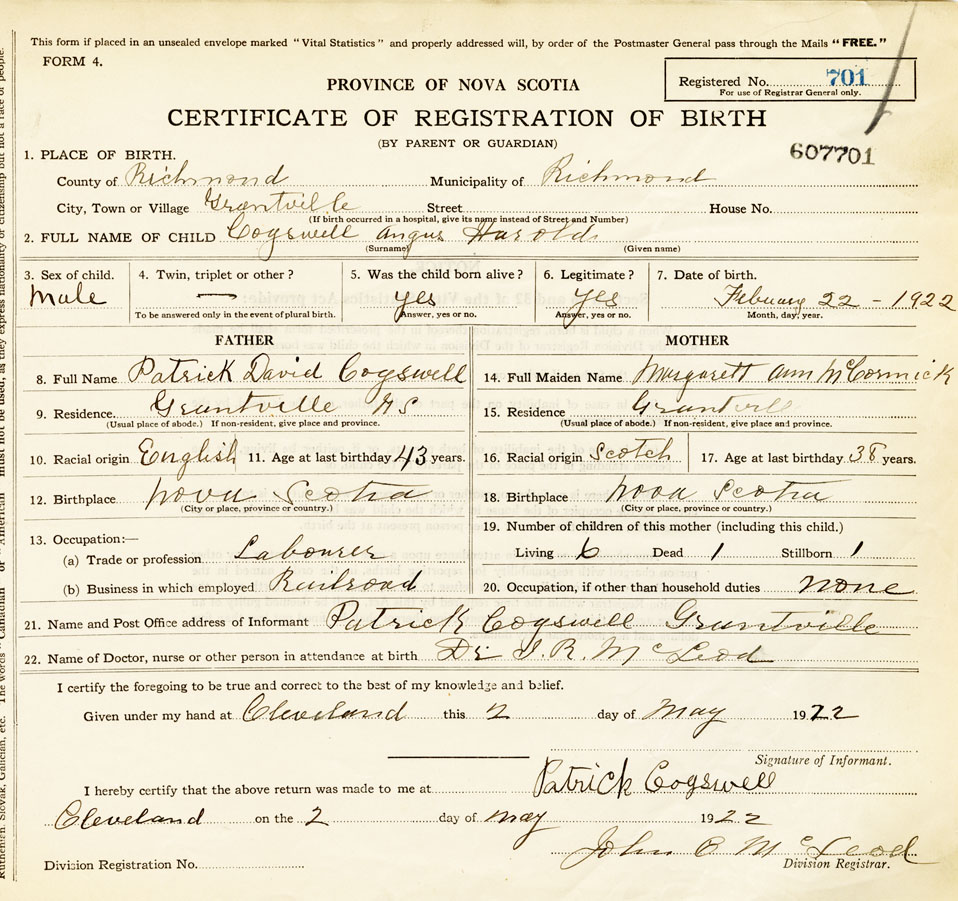 This form if placed in an unsealed envelope marked "Vital Statistics" and properly addressed will, by order of the Postmaster General pass through the Mails "FREE."
FORM 4.
PROVINCE OF NOVA SCOTIA
Registered No. 701
For use of Registrar General only.
CERTIFICATE OF REGISTRATION OF BIRTH
(BY PARENT OR GUARDIAN)
607701
1. PLACE OF BIRTH.
County of Richmond Municipality of Richmond
City, Town or Village Grantville Street House No.
(If birth occurred in a hospital, give its name instead of Street and Number)
2. FULL NAME OF CHILD Cogswell Angus Harold
(Surname) (Given name)
3. Sex of child. 4. Twin, triplet or other? 5. Was the child born alive? 6. Legitimate? 7. Date of birth.
Male — yes yes February 22 - 1922
To be answered only in the event of plural birth. Answer, yes or no. Answer, yes or no. Month, day, year.
FATHER MOTHER
8. Full Name Patrick David Cogswell 14. Full Maiden Name Margarett Ann McCormick
9. Residence. Grantville NS 15. Residence Grantvill
(Usual place of abode.) If non-resident, give place and province. (Usual place of abode.) If non-resident, give place and province.
10. Racial origin English 11. Age at last birthday 43 years. 16. Racial origin Scotch 17. Age at last birthday 38 years.
12. Birthplace Nova Scotia 18. Birthplace Nova Scotia
(City or place, province or country.) (City or place, province or country.)
13. Occupation:— 19. Number of children of this mother (including this child.)
(a) Trade or profession Labourer Living 6 Dead 1 Stillborn 1
(b) Business in which employed Railroad 20. Occupation, if other than household duties none
21. Name and Post Office address of Informant Patrick Cogswell Grantville
22. Name of Doctor, nurse or other person in attendance at birth Dr. J. R. McLeod
I certify the foregoing to be true and correct to the best of my knowledge and belief.
Given under my hand at Cleveland this 2 day of May 1922
Signature of Informant.
I hereby certify that the above return was made to me at Patrick Cogswell
Cleveland on the 2 day of May 1922
John C McLeod
Division Registration No. Division Registrar.